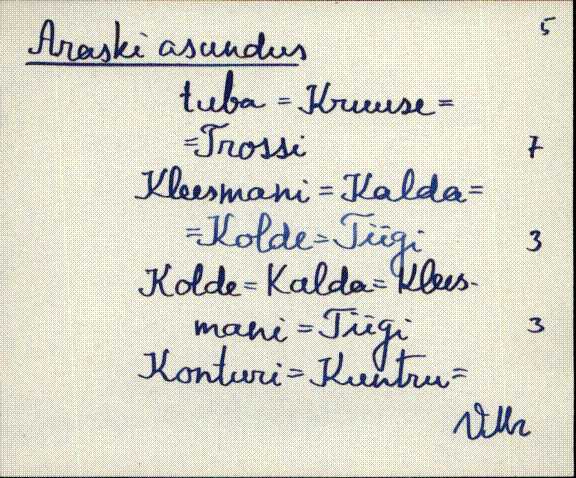 5
Araski asundus
tuba = Kruuse =
=Trossi 7
Kleesmani = Kalda =
=Kolde = Tiigi 3
Kolde = Kalda = Klees-
mani = Tiigi 3
Konturi = Kuntru =